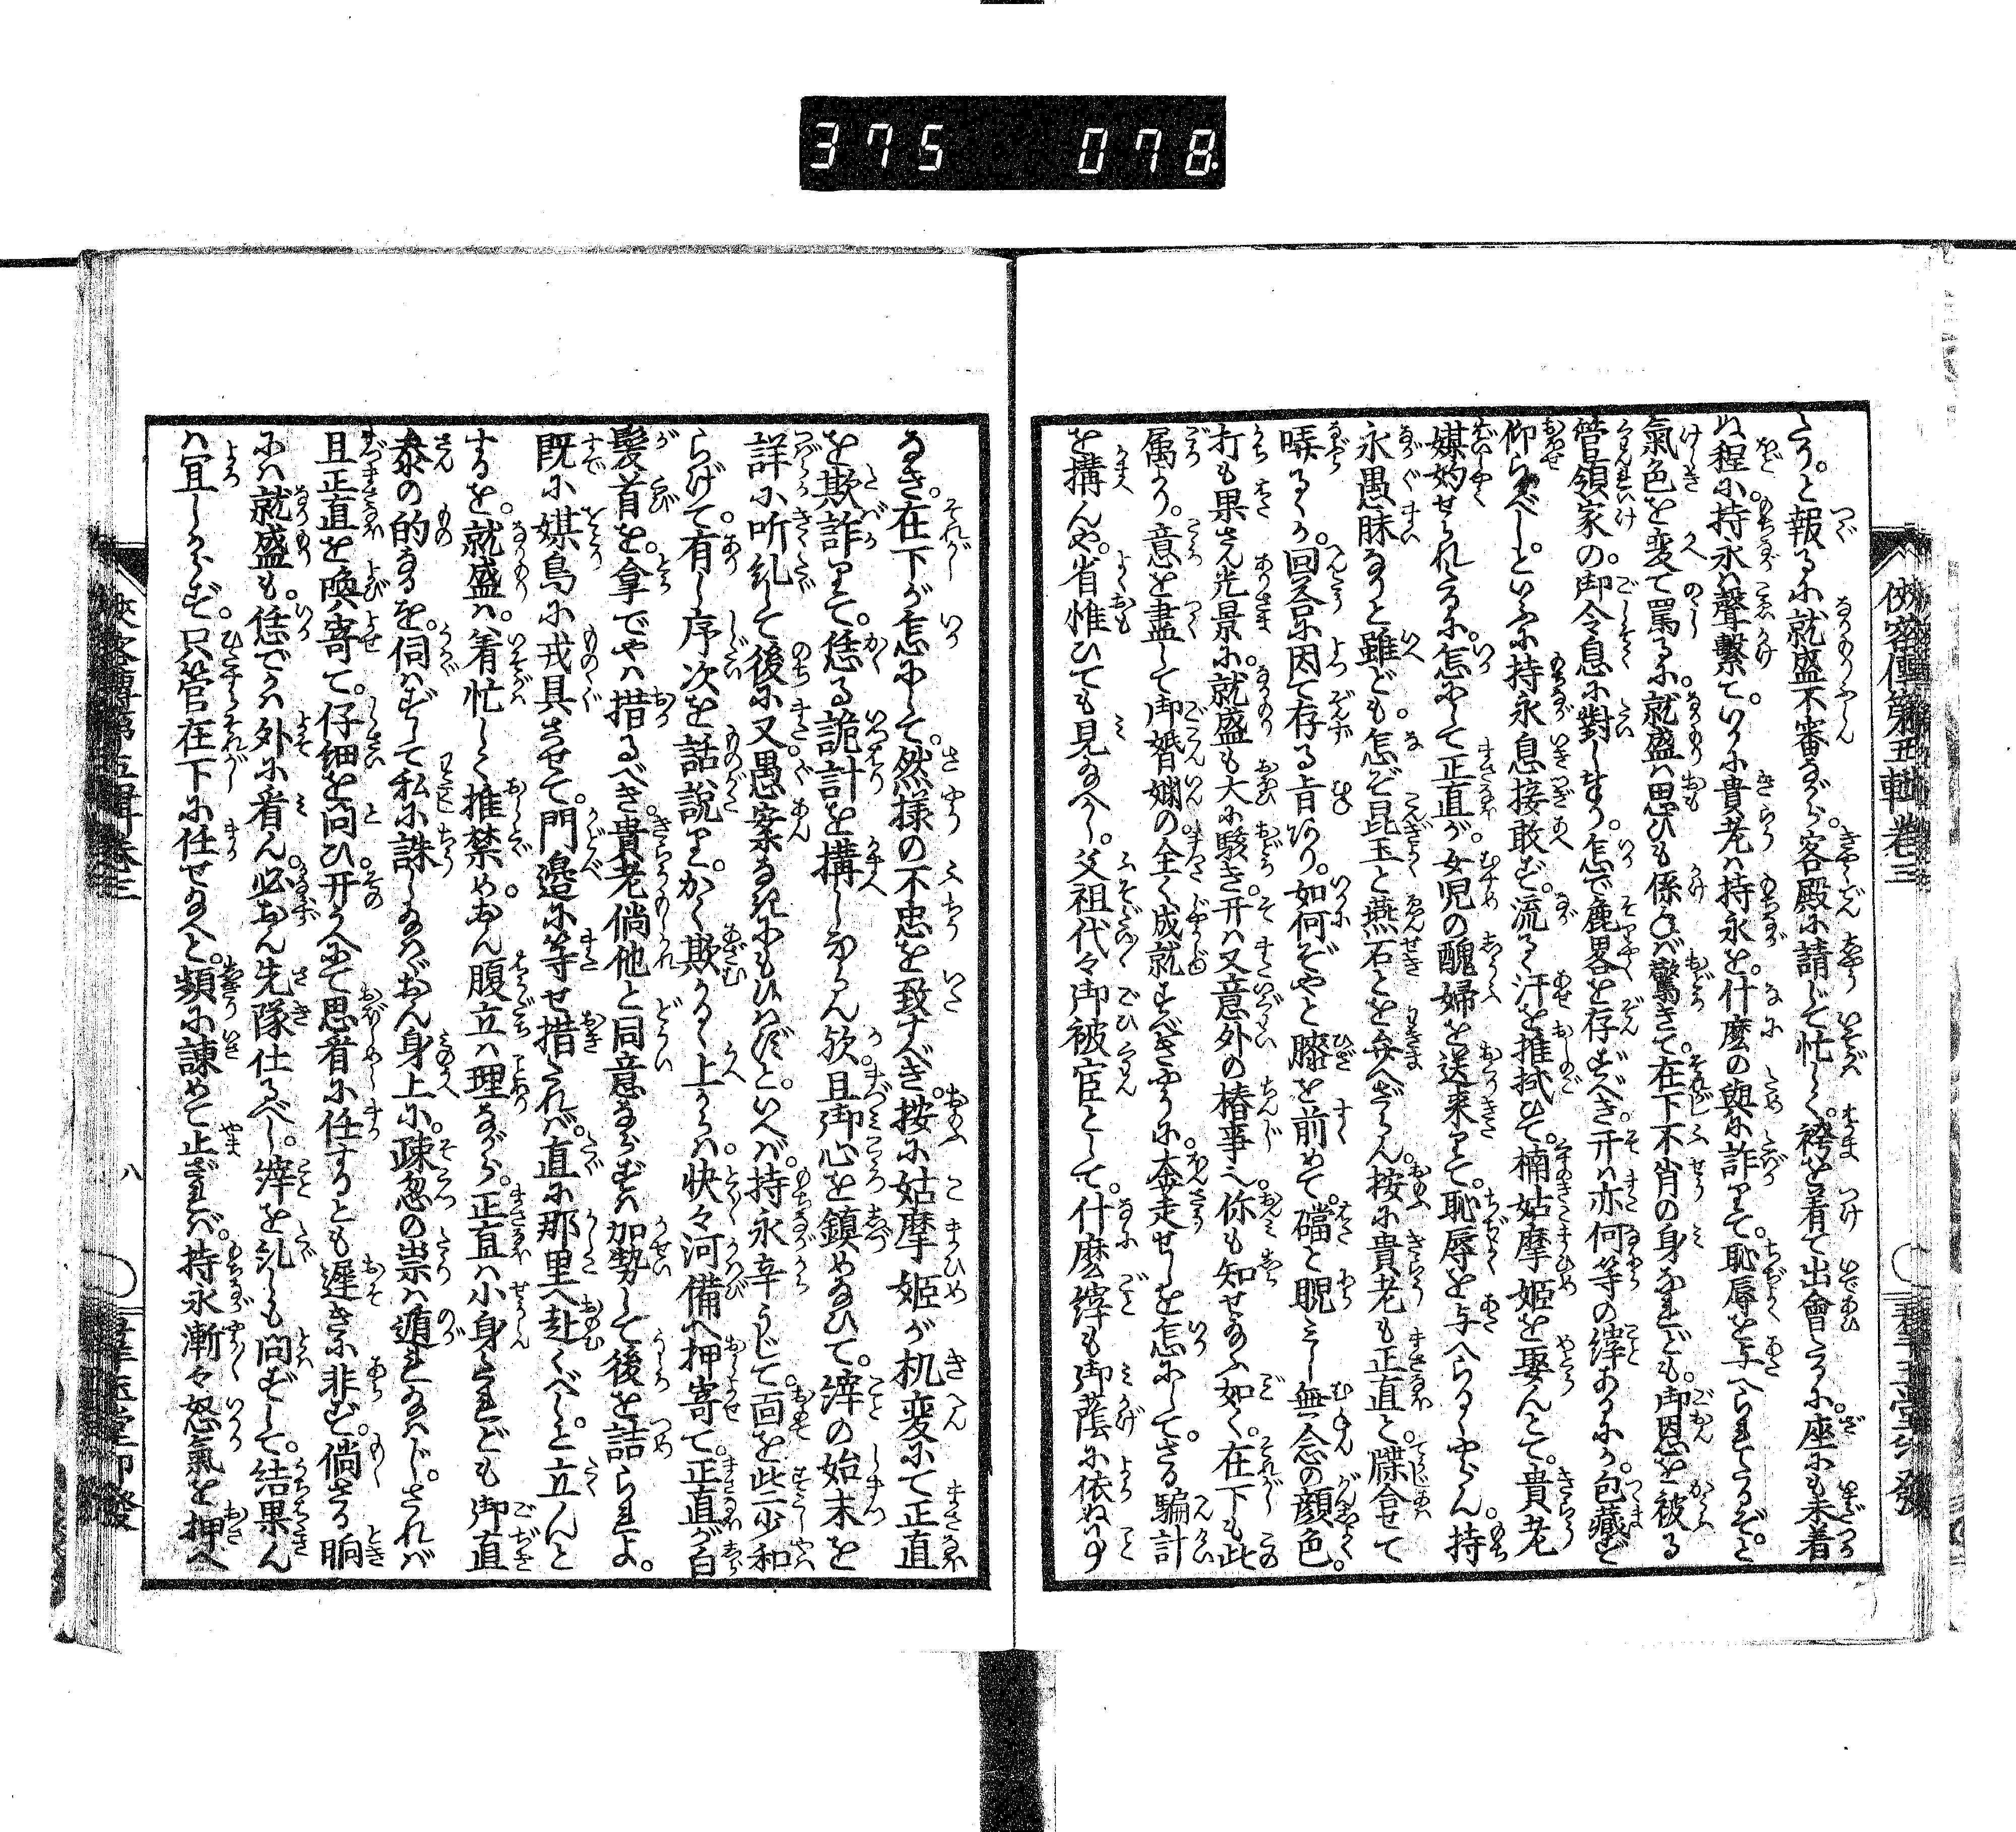 375 078
俠客傳第五輯卷三
たり。と報るに就盛不審ながら。客殿に請じて忙しく。袴を着て出會たるに。座にも未着
ぬ程に。持永は聲繋て。いかに貴老は持永を。什麼の與に詐りて。恥辱を与へられたるぞ。と
氣色を変て罵るに。就盛は思ひも係ねば驚きて。在下不肖の身なれども。御恩を被る
管領家の。御令息に對しまゐ。怎で麁畧を存ずべき。开は亦何等の縡あるにか。包藏ず
仰らるべし。といふに持永息接敢ず。流るゝ汗を推拭ひて。楠姑摩姫を娶んとて。貴老
媒妁せられたるに。怎にして正直が。女児の醜婦を送来りて。恥辱を与へらるゝやらん。持
永愚昧なりと雖ども。怎ぞ昆玉と燕石とを弁へざらん。按に貴老も正直と。牒合せて
嘆るゝか。回答に因て存る旨あり。如何ぞやと膝を前めて。礑と睨みし無念の顔色。
打も果さん光景に。就盛も大に駭き。开は又意外の椿事也。你も知せ給ふ如く。在下も此
属より。意を盡して御婚姻の。全く成就すべきやうに。奔走せしを怎にして。さる騙計
を搆んや。省惟ひても見給へかし。父祖代々御被官として。什麼縡も御蔭に依ぬはあ
るき。在下が怎にして。然様の不忠を致すべき。按に姑摩姫が机変にて正直
を欺詐りて。恁る詭計を搆しならん欤。且御心を鎮め給ひて。縡の始末を
詳に听糺して後に又愚案なきにも候はずと。いへば。持永辛うじて。面を些少和
らげて。有し序次を話說りつ。かく欺かるゝ上からは。快々河備へ押寄て。正直が白
髮首を。拿でやは措るべき。貴老倘他と同意ならずは加勢して後を詰られよ。
既に媒鳥に戎具させて。門邉に等せ措たれば。直に那里へ赴くべし。と立んと
するを。就盛は。着忙しく推禁め。おん腹立は理ながら。正直は小身なれども御直
泰の的なるを。伺はずして私に誅し給はゞおん身上に。疎忽の祟は遁れ給はじ。されば
且正直を喚寄て。仔細を问ひ。开が答にて思召に任するとも遲きに非ず。倘さる晌
には就盛も。恁でか外に看ん。必おん先隊仕るべし。縡を糺しも問ずして。結果ん
は冝しからず。只管在下に任せ給へと。頻に諫めて止ざれば。持永漸々怒氣を押へ
俠客傳第五輯卷三
八